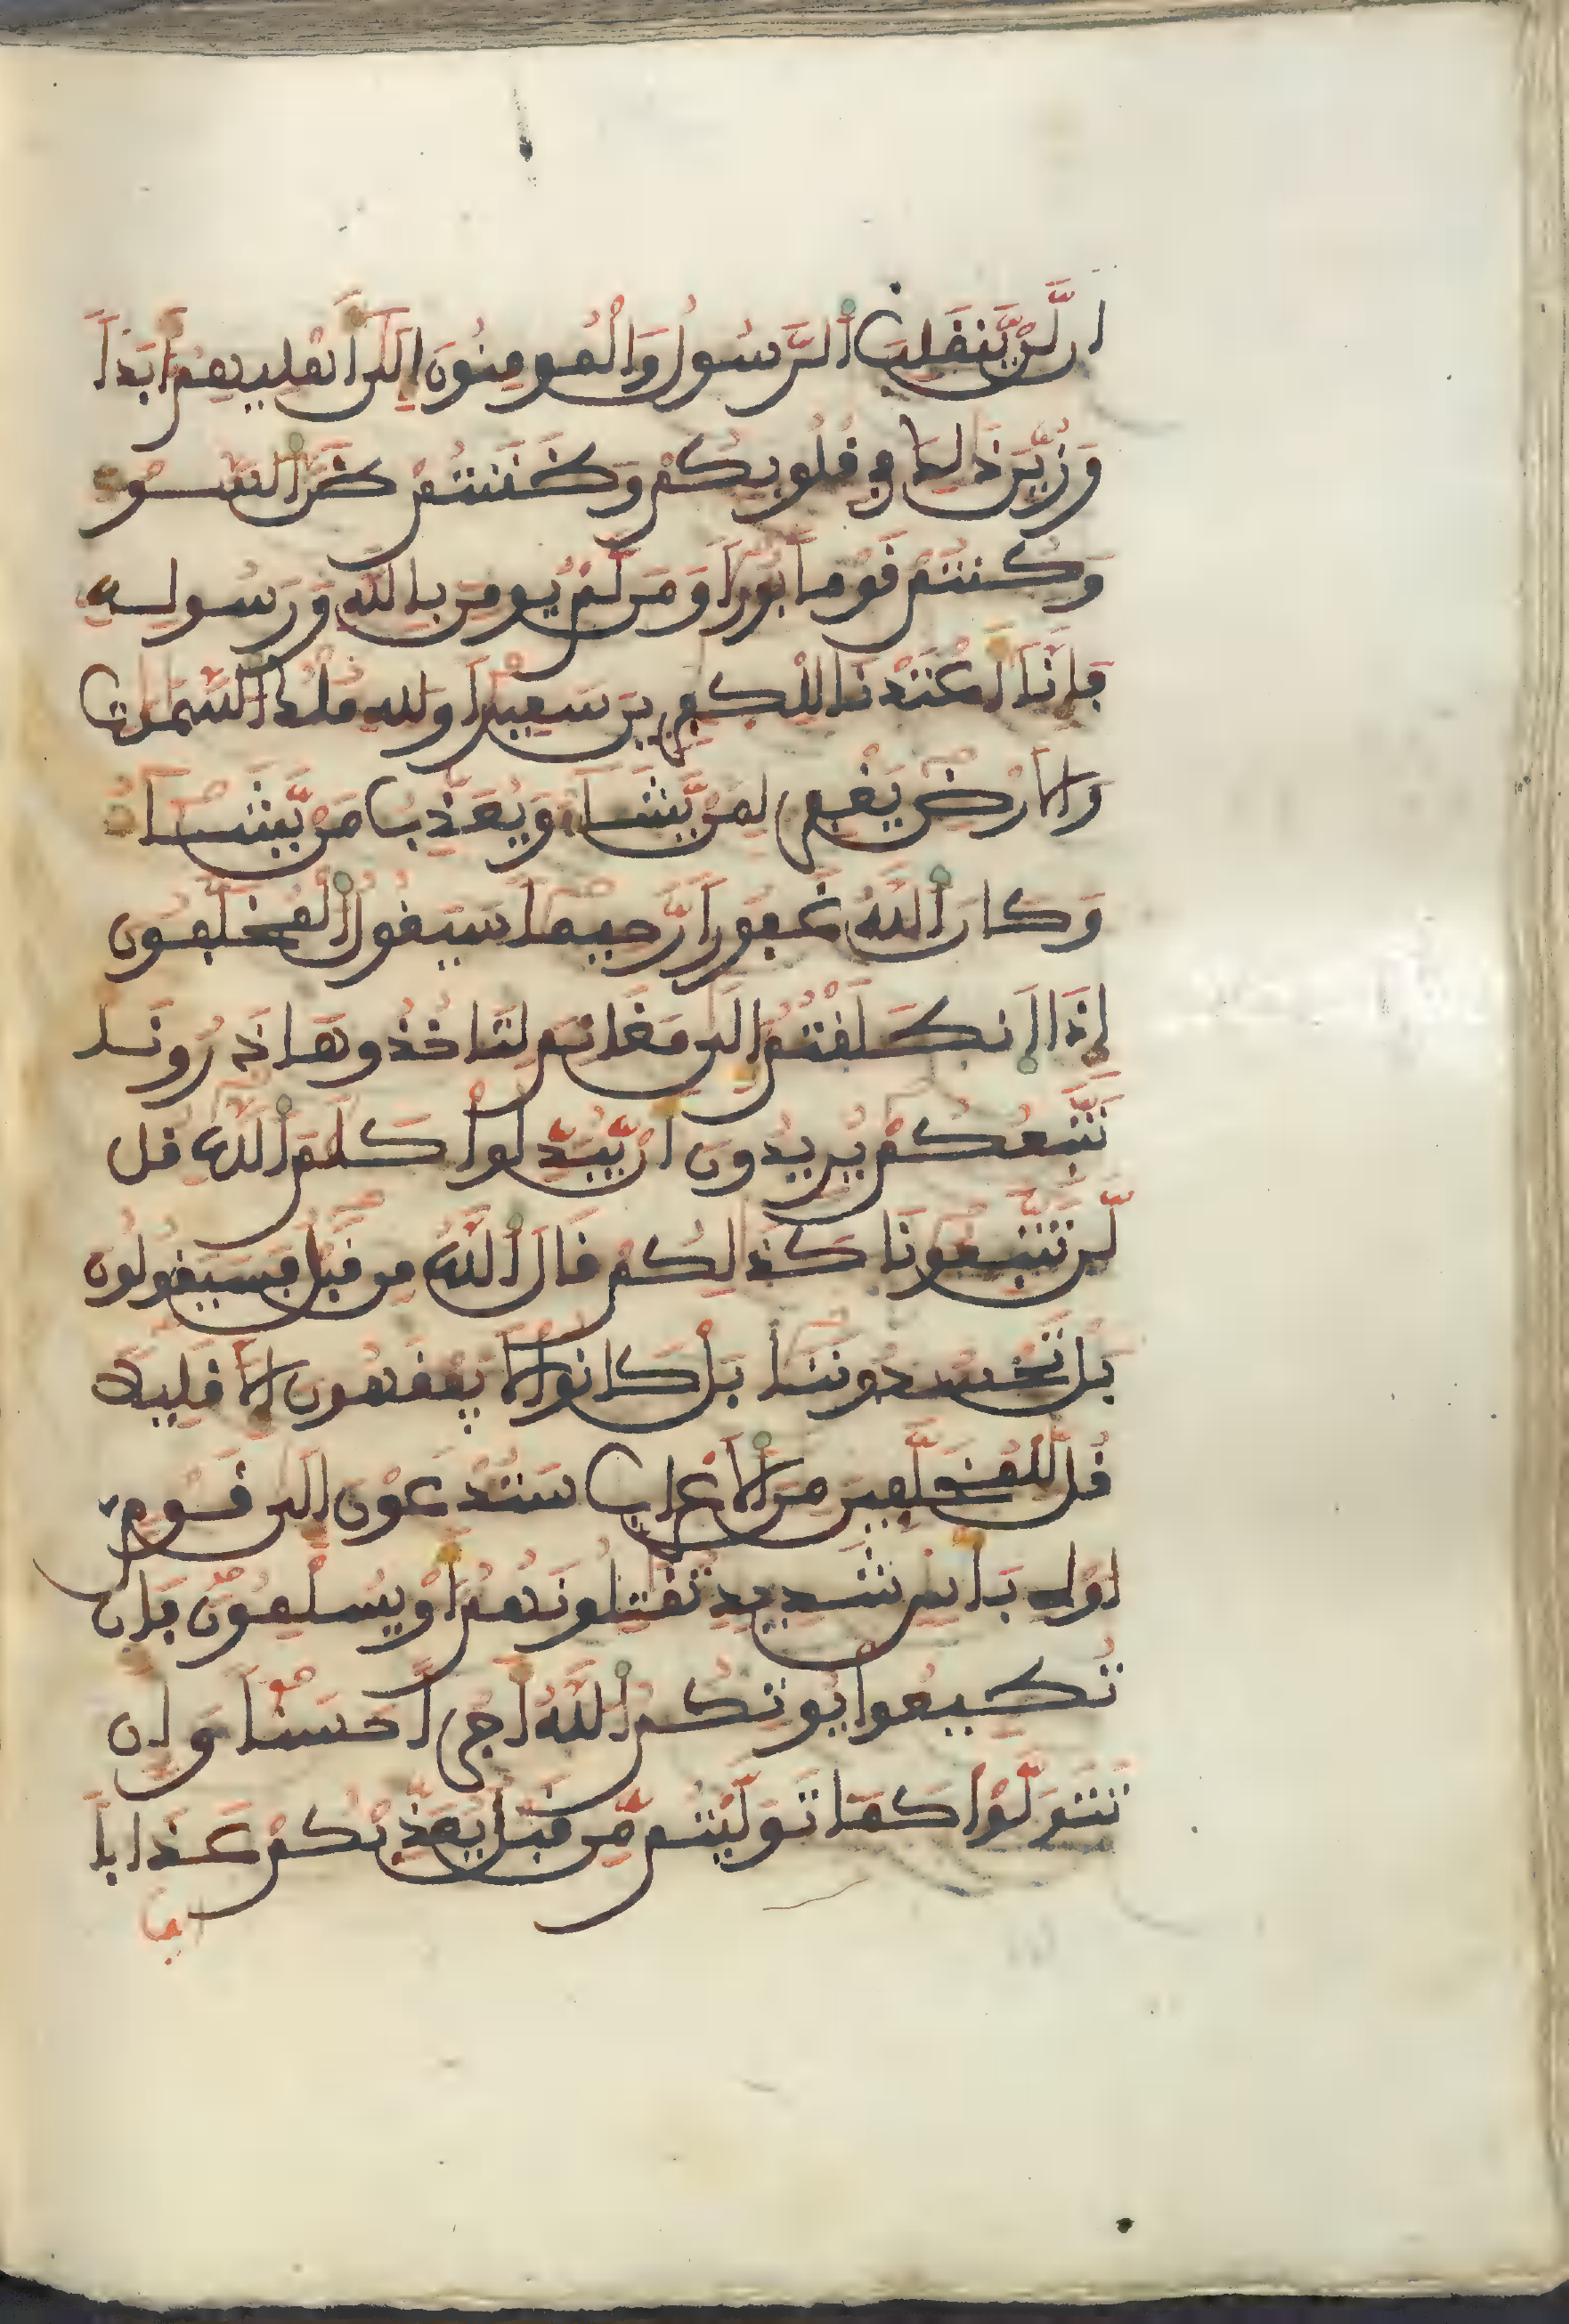 ان لَّنْ يَّنقَلِبَ اَ۬لرَّسُولُ وَالْمُومِنُونَ إِلَىٰ أَهْلِيهِمُ أَبَداٗ
وَزُيِّنَ ذَٰلِكَ فِے قُلُوبِكُمْ وَظَنَنتُمْ ظَنَّ اَ۬لسَّوْءِ
وَكُنتُمْ قَوْماَۢ بُوراٗ وَمَن لَّمْ يُومِنۢ بِاللَّهِ وَرَسُولِهِۦ
فَإِنَّا أَعْتَدْنَا لِلْكٰفِرِينَ سَعِيراٗ وَلِلهِ مُلْكُ اُ۬لسَّمَٰوَٰتِ
وَالَارْضِ يَغْفِرُ لِمَنْ يَّشَاءُ وَيُعَذِّبُ مَنْ يَّشَاءُ
وَكَانَ اَ۬للَّهُ غَفُوراٗ رَّحِيماٗ سَيَقُولُ اُ۬لْمُخَلَّفُونَ
إِذَا اَ۪نطَلَقْتُمُ إِلَىٰ مَغَانِمَ لِتَاخُذُوهَا ذَرُونَا
نَتَّبِعْكُمْ يُرِيدُونَ أَنْ يُّبَدِّلُواْ كَلَٰمَ اَ۬للَّهِ قُل
لَّن تَتَّبِعُونَا كَذَٰلِكُمْ قَالَ اَ۬للَّهُ مِن قَبْلُ فَسَيَقُولُونَ
بَلْ تَحْسُدُونَنَا بَلْ كَانُواْ لَا يَفْقَهُونَ إِلَّا قَلِيلاٗ
قُل لِّلْمُخَلَّفِينَ مِنَ اَ۬لَاعْرَابِ سَتُدْعَوْنَ إِلَىٰ قَوْمٍ
اوْلِے بَأْسٖ شَدِيدٖ تُقَٰتِلُونَهُمُ أَوْ يُسْلِمُونَ فَإِن
تُطِيعُواْ يُوتِكُمُ اُ۬للَّهُ أَجْراً حَسَناٗ وَإِن
تَتَوَلَّوْاْ كَمَا تَوَلَّيْتُم مِّن قَبْلُ يُعَذِّبْكُمْ عَذَاباً